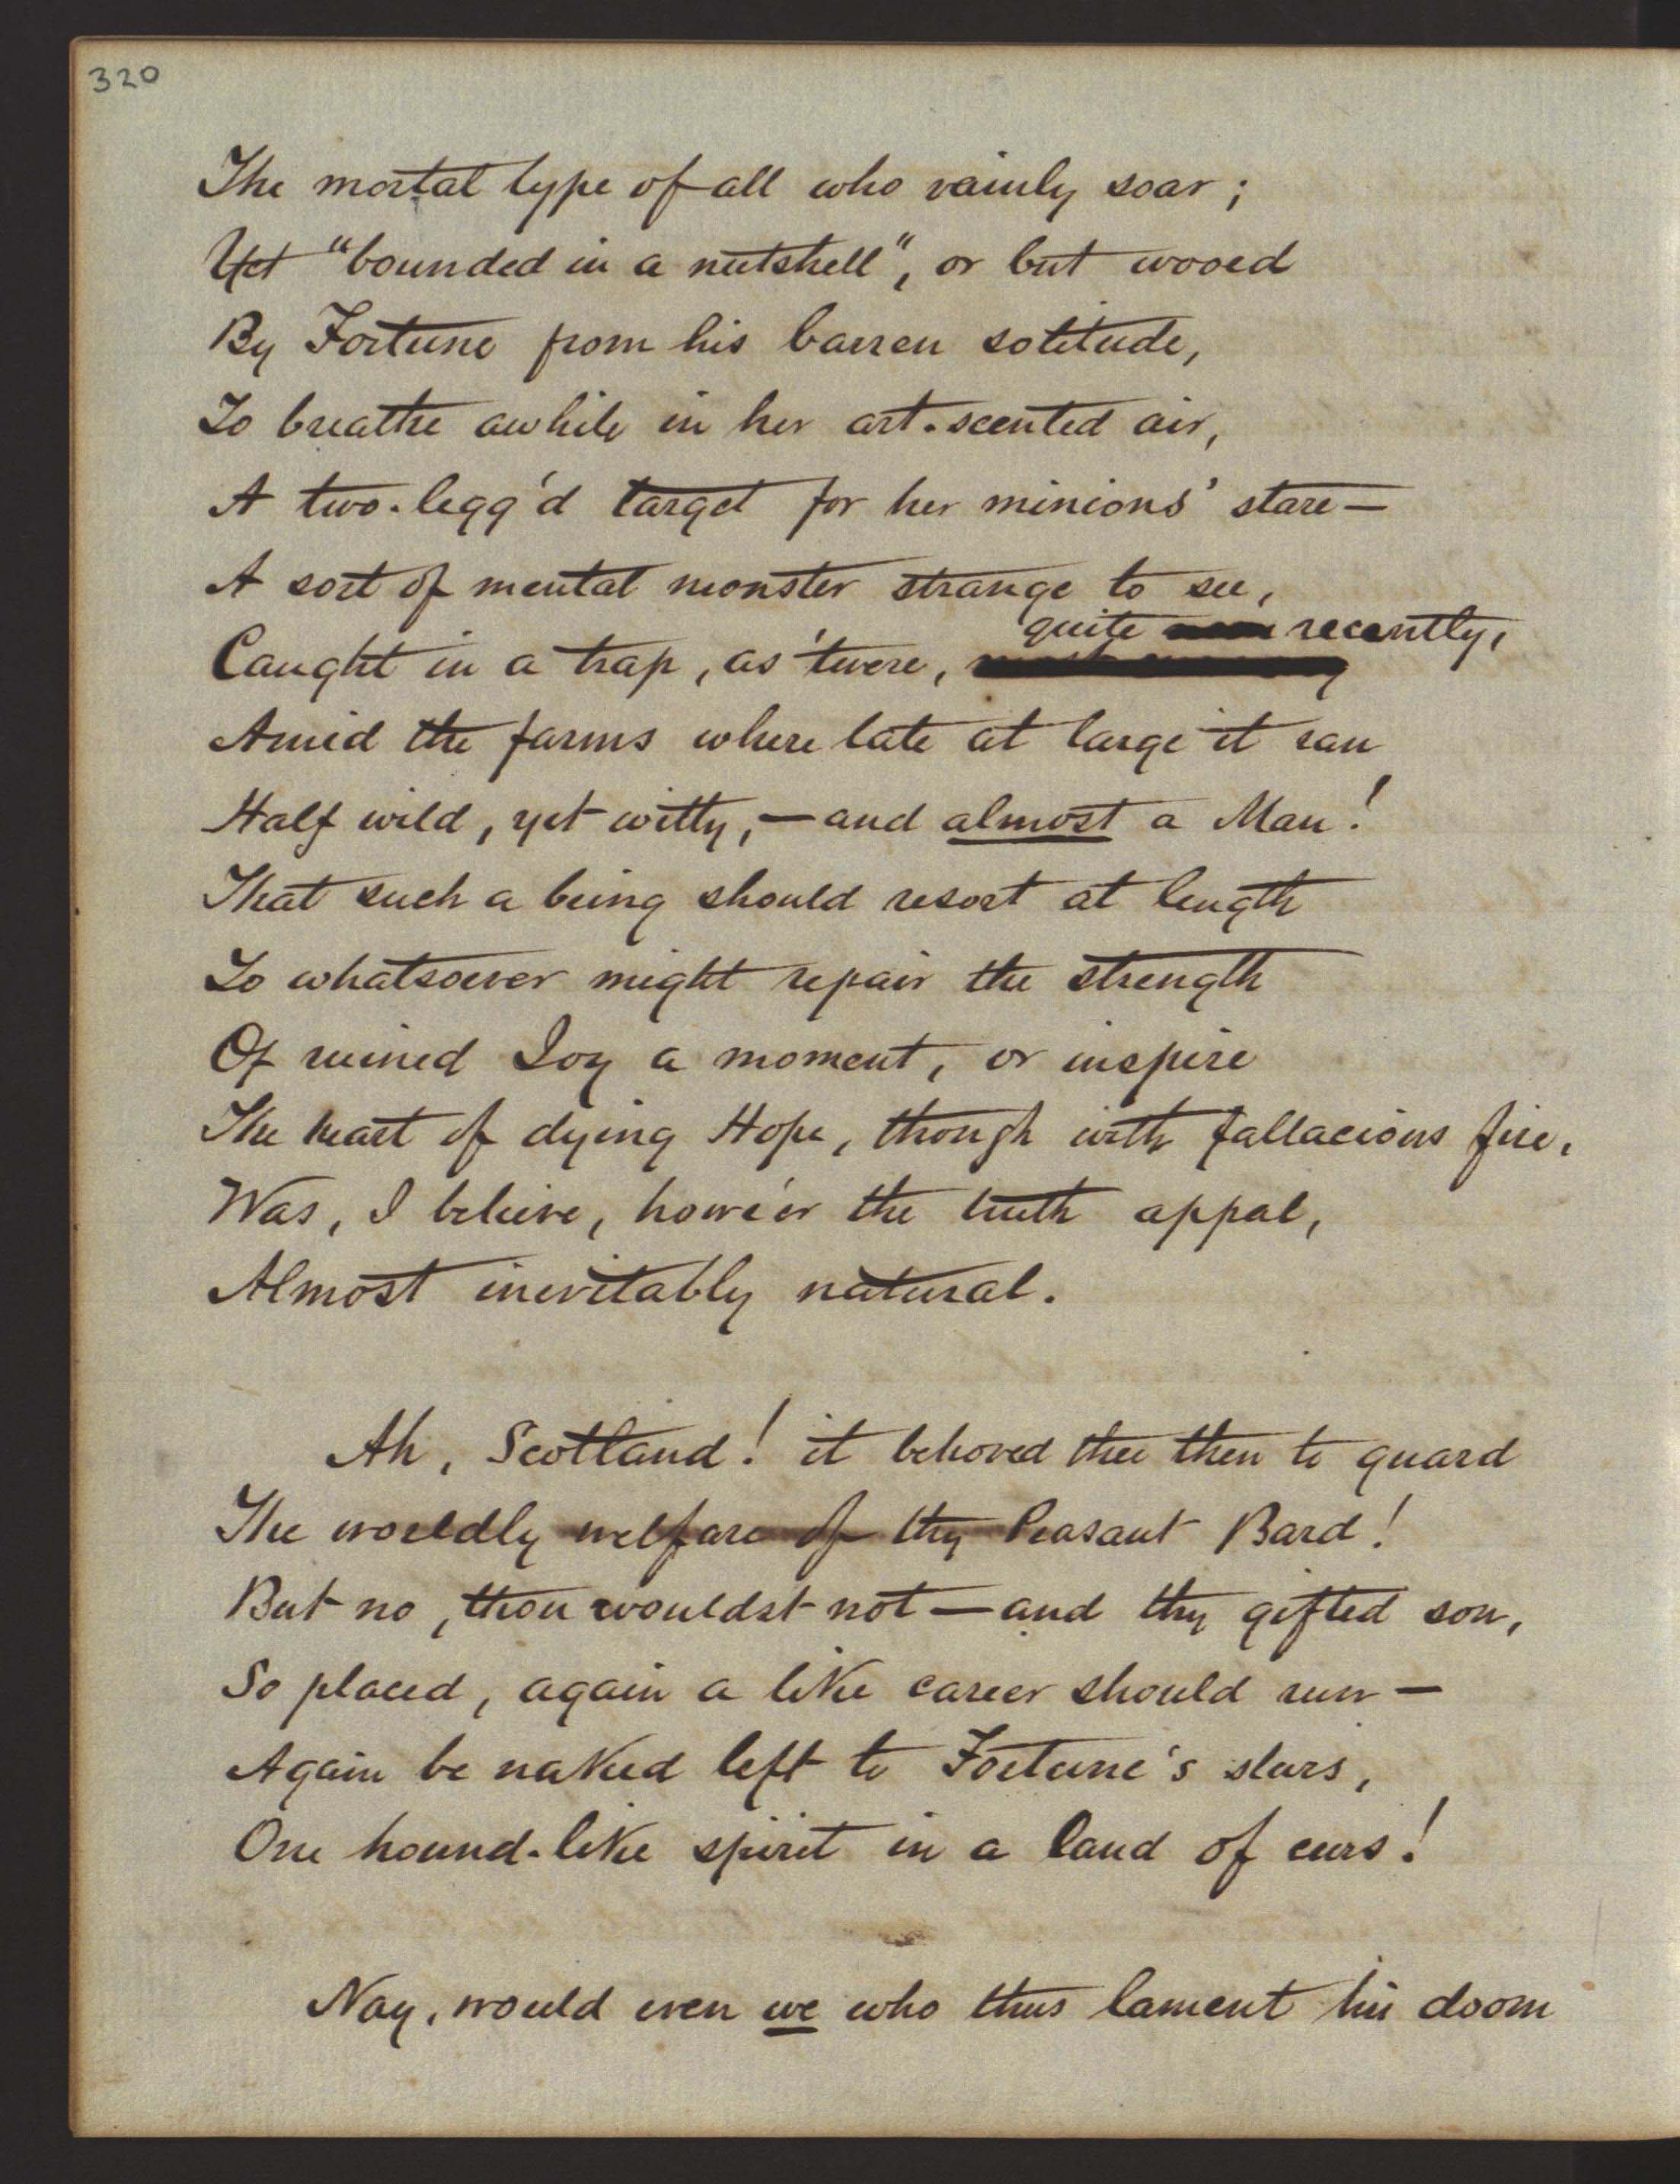 320
The mortal type of all who vainly soar;
Yet "bounded in a nutshell", or but wooed
By Fortune from his barren solitude,
To breathe awhile in her art-scented air,
A two-legg'd target for her minions' stare—
A sort of mental monster strange to see,
quite recently,
Caught in a trap, as 'twere,
Amid the farms where late at large it ran
Half wild, yet witty,—and almost a Man!
That such a being should resort at length
To whatsoever might repair the strength
Of ruined Joy a moment, or inspire
The heart of dying Hope, though with fallacious fire,
Was, I believe, howe'er the truth appal,
Almost inevitably natural.
Ah, Scotland! it behoved thee then to guard
The worldly welfare of thy Peasant Bard!
But no, thou wouldst not—and thy gifted son,
So placed, again a like career should run—
Again be naked left to Fortune's slurs,
One hound-like spirit in a land of curs!
Nay, would even we who thus lament his doom